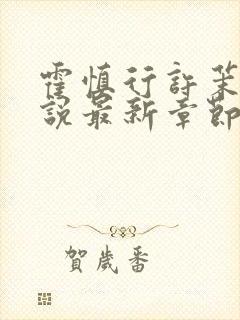 霍慎行許茉
說最新章節
賀歲番